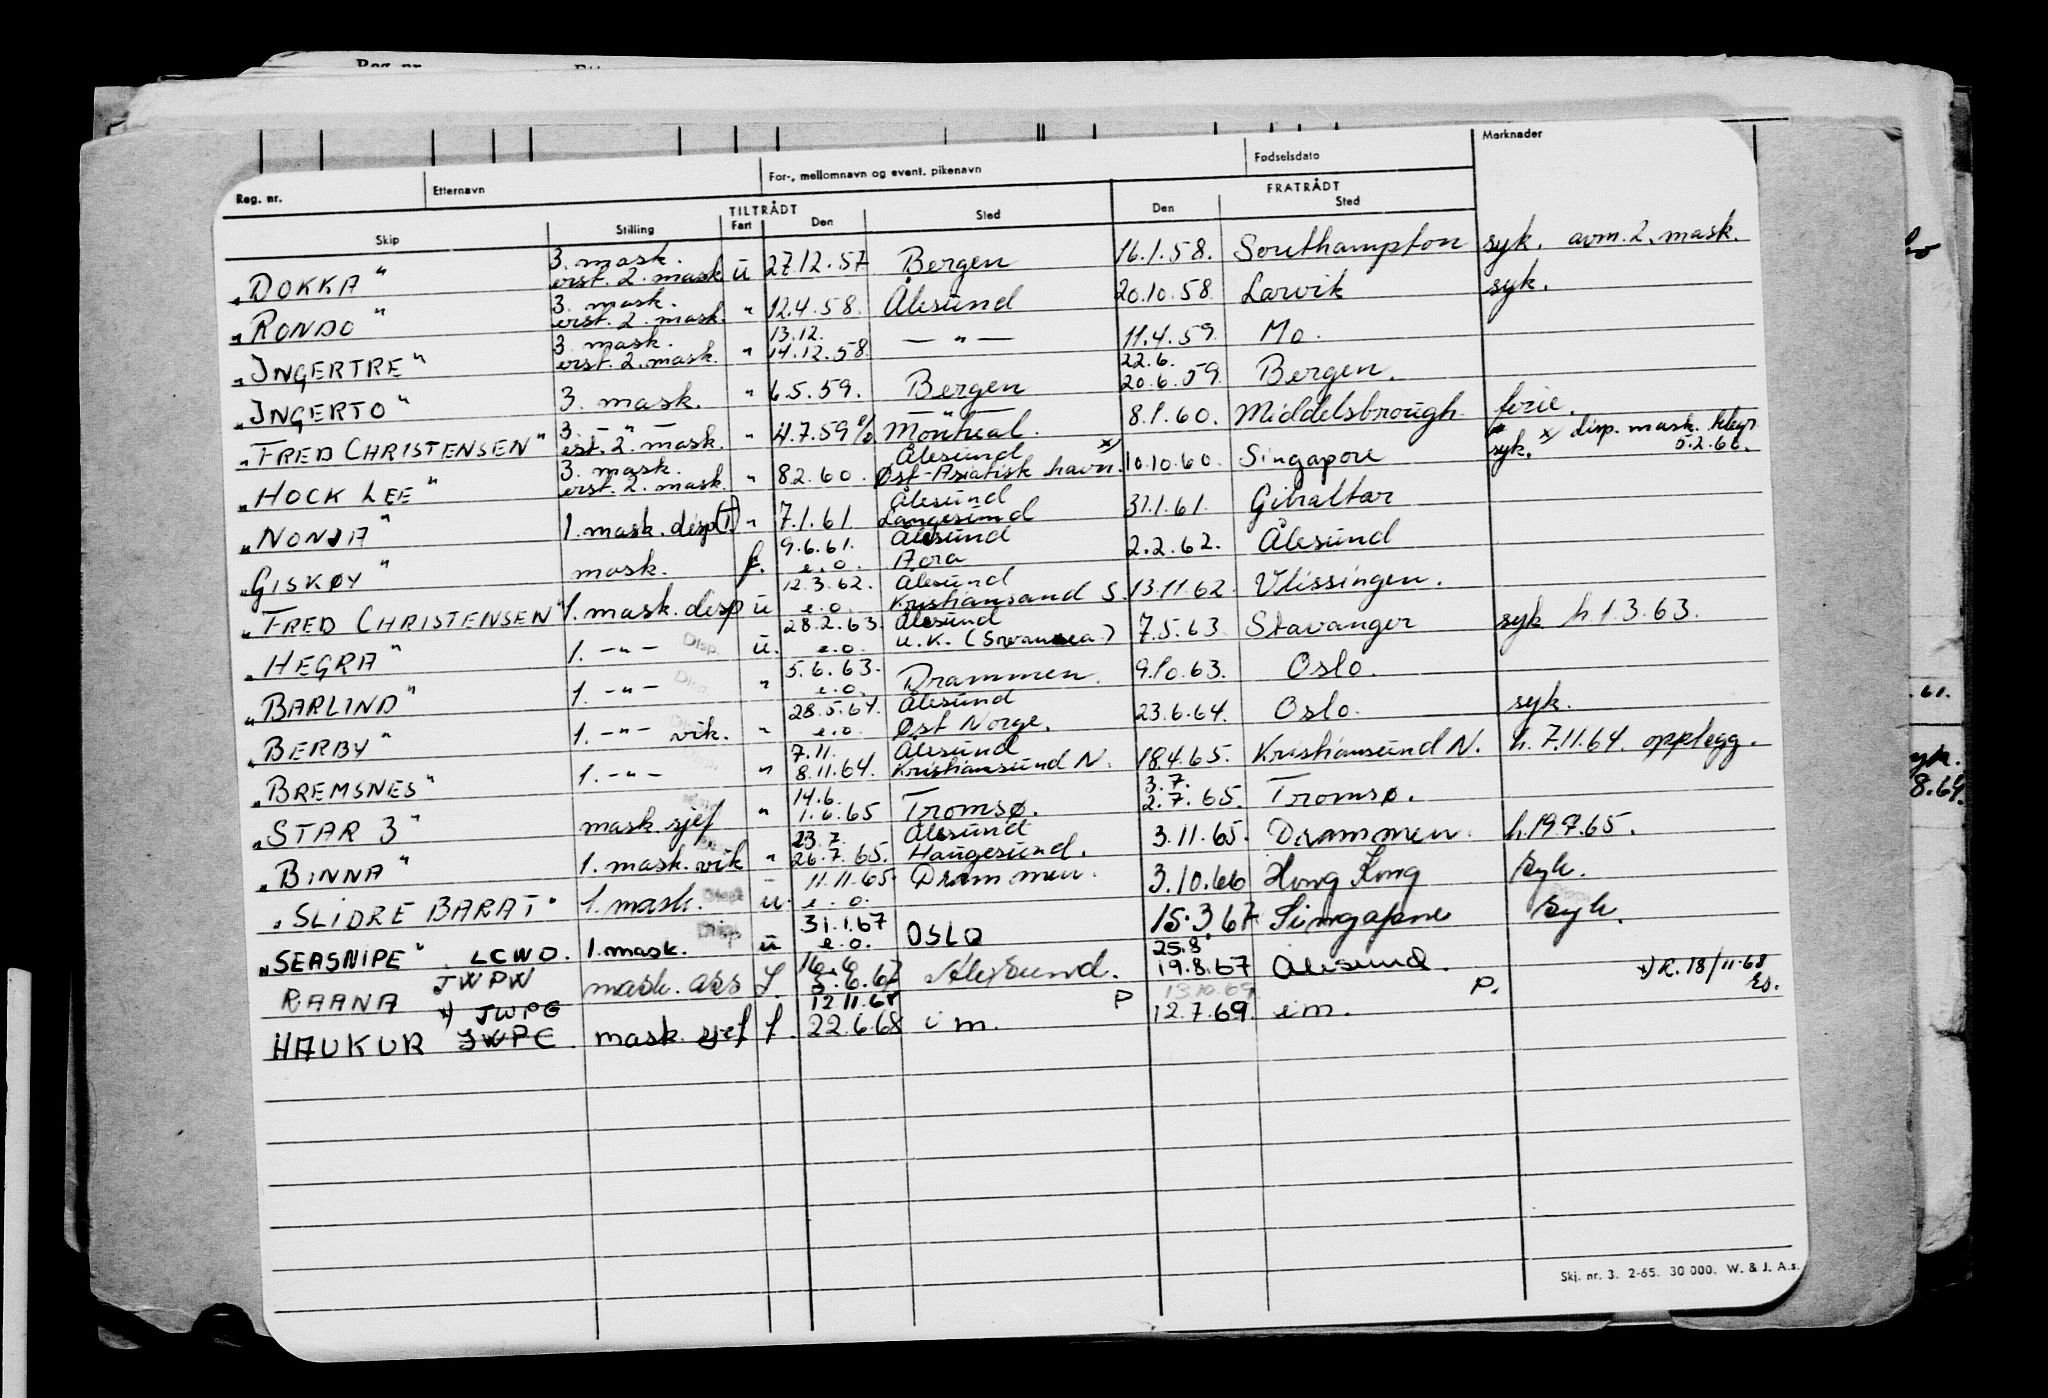 Reg. nr.
Etternavn
For-, mellomnavn og event. pikenavn
Fødselsdato
Merknader
TILTRÅDT
FRATRÅDT
Skip Stilling Fart Den Sted Den Sted
3. mask.
„DOKKA" erst. 2. mask ü 27.12.57 Bergen 16.1.58. Southampton syk. avm. 2. mask.
3. mask.
„RONDO" erst. 2. mask. " 12.4.58. Ålesund 20.10.58 Larvik syk.
3. mask. 13.12.
„INGERTRE" erst. 2. mask. " 14.12.58. — " — 11.4.59. Mo.
22.6.
„INGERTO" 3. mask. " 6.5.59. Bergen 20.6.59 Bergen.
3. — " —
„FRED CHRISTENSEN" est. 2. mask. " 4.7.59 Montreal. 8.1.60. Middelsbrough ferie.
x) disp. mask. telegr. 5.2.60.
3. mask. Ålesund
„HOCK LEE" erst. 2. mask. " 8.2.60. Øst-Asiatisk havn. x) 10.10.60. Singapore syk.
Ålesund
„NONJA" 1. mask. disp (T) " 7.1.61 Langesund 31.1.61. Gibraltar
9.6.61. Ålesund
„GISKØY" mask. f. e.o. Aora 2.2.62. Ålesund
12.3.62. Ålesund
„FRED CHRISTENSEN" 1. mask. disp ü e.o. Kristiansand S. 13.11.62 Vlissingen.
28.2.63. Ålesund
„HEGRA" 1. — " — Disp. ü. e.o. U.K. (Swansea) 7.5.63. Stavanger syk h 1.3.63.
5.6.63.
„BARLIND" 1. — " — Disp. " e.o. Drammen. 9.10.63. Oslo.
28.5.64. Ålesund
„BERBY" 1. — " — vik. " e.o. Øst Norge. 23.6.64. Oslo. syk.
7.11. Ålesund
„BREMSNES" 1. — " — " 8.11.64. Kristiansund N. 18.4.65. Kristiansund N. h. 7.11.64. opplegg.
14.6. 3.7.
„STAR 3" mask. sjef " 1.6.65 Tromsø. 2.7.65. Tromsø.
23.7. Ålesund
„BINNA" 1. mask. vik " 26.7.65. Haugesund. 3.11.65. Drammen. h. 19.7.65.
11.11.65 Drammen.
„SLIDRE BARAT" 1. mask. Disp ü. e.o. 3.10.66 Hong Kong syk.
31.1.67
„SEASNIPE" LCWD. 1. mask. Disp ü e.o. OSLO 15.3.67 Singapore syk.
25.8.
RAANA JWPW mask. ass f. 6.67 Ålesund. 19.8.67 Ålesund.
x) R. 18/11-68 Es.
x) JWPG 12.11.68 P 13.10.69 P.
HAUKUR JWPE. mask. sjef f. 22.6.68 i m. 12.7.69. i m.
Skj. nr. 3. 2-65. 30 000. W. & J. A.s.
Reg. nr.
.61.
syk.
8.64.